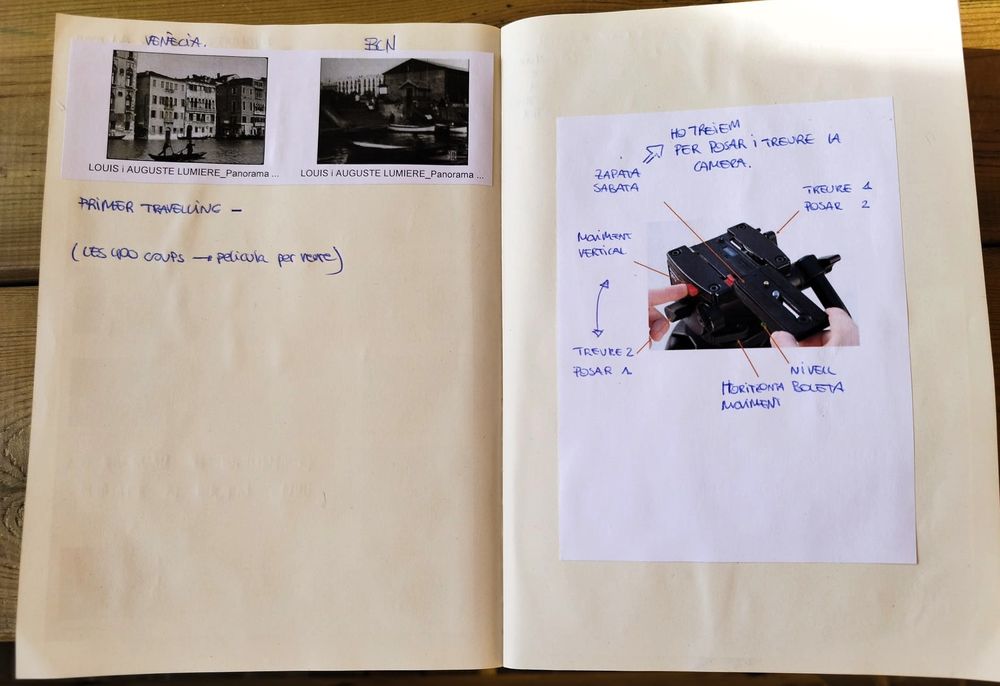 VENÈCIA.
BCN
LOUIS i AUGUSTE LUMIERE_Panorama ...
LOUIS i AUGUSTE LUMIERE_Panorama ...
PRIMER TRAVELLING –
(LES 400 COUPS → película per veure)
HO TREIEM
PER POSAR I TREURE LA
CAMERA.
ZAPATA
SABATA
TREURE 1
POSAR 2
MOVIMENT
VERTICAL
TREURE 2
POSAR 1
NIVELL
BOLETA
HORITZONTA
MOVIMENT